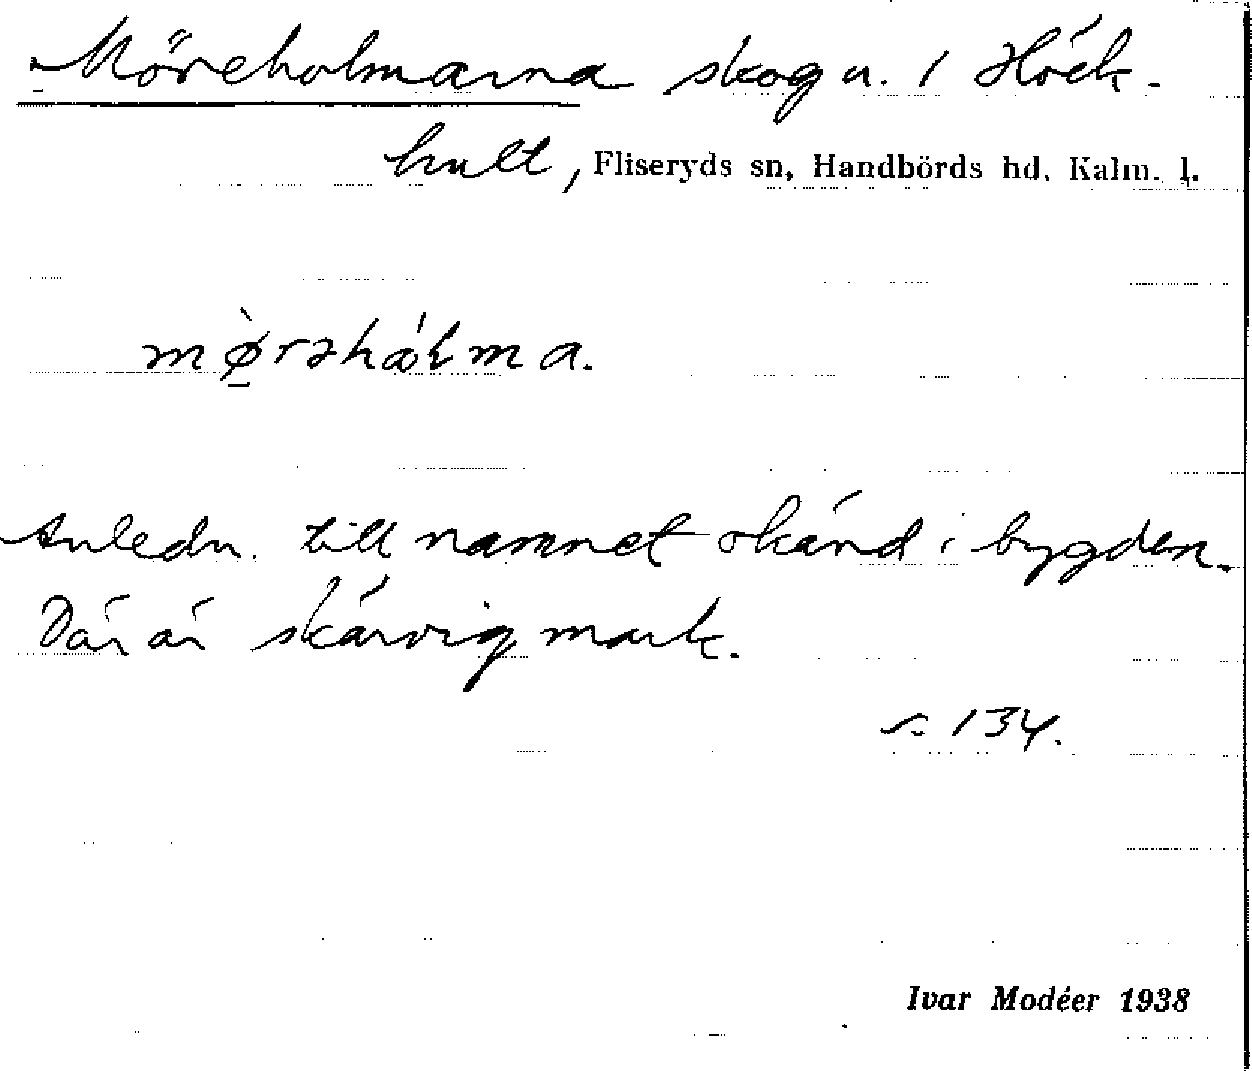 Möreholmarna skog u. 1 Höck-
hult, Fliseryds sn, Handbörds hd. Kalm. l.
mø̀rəhål̀ma.
Anledn. till namnet okänd i bygden.
Där är skärvig mark.
s. 134.
Ivar Modéer 1938